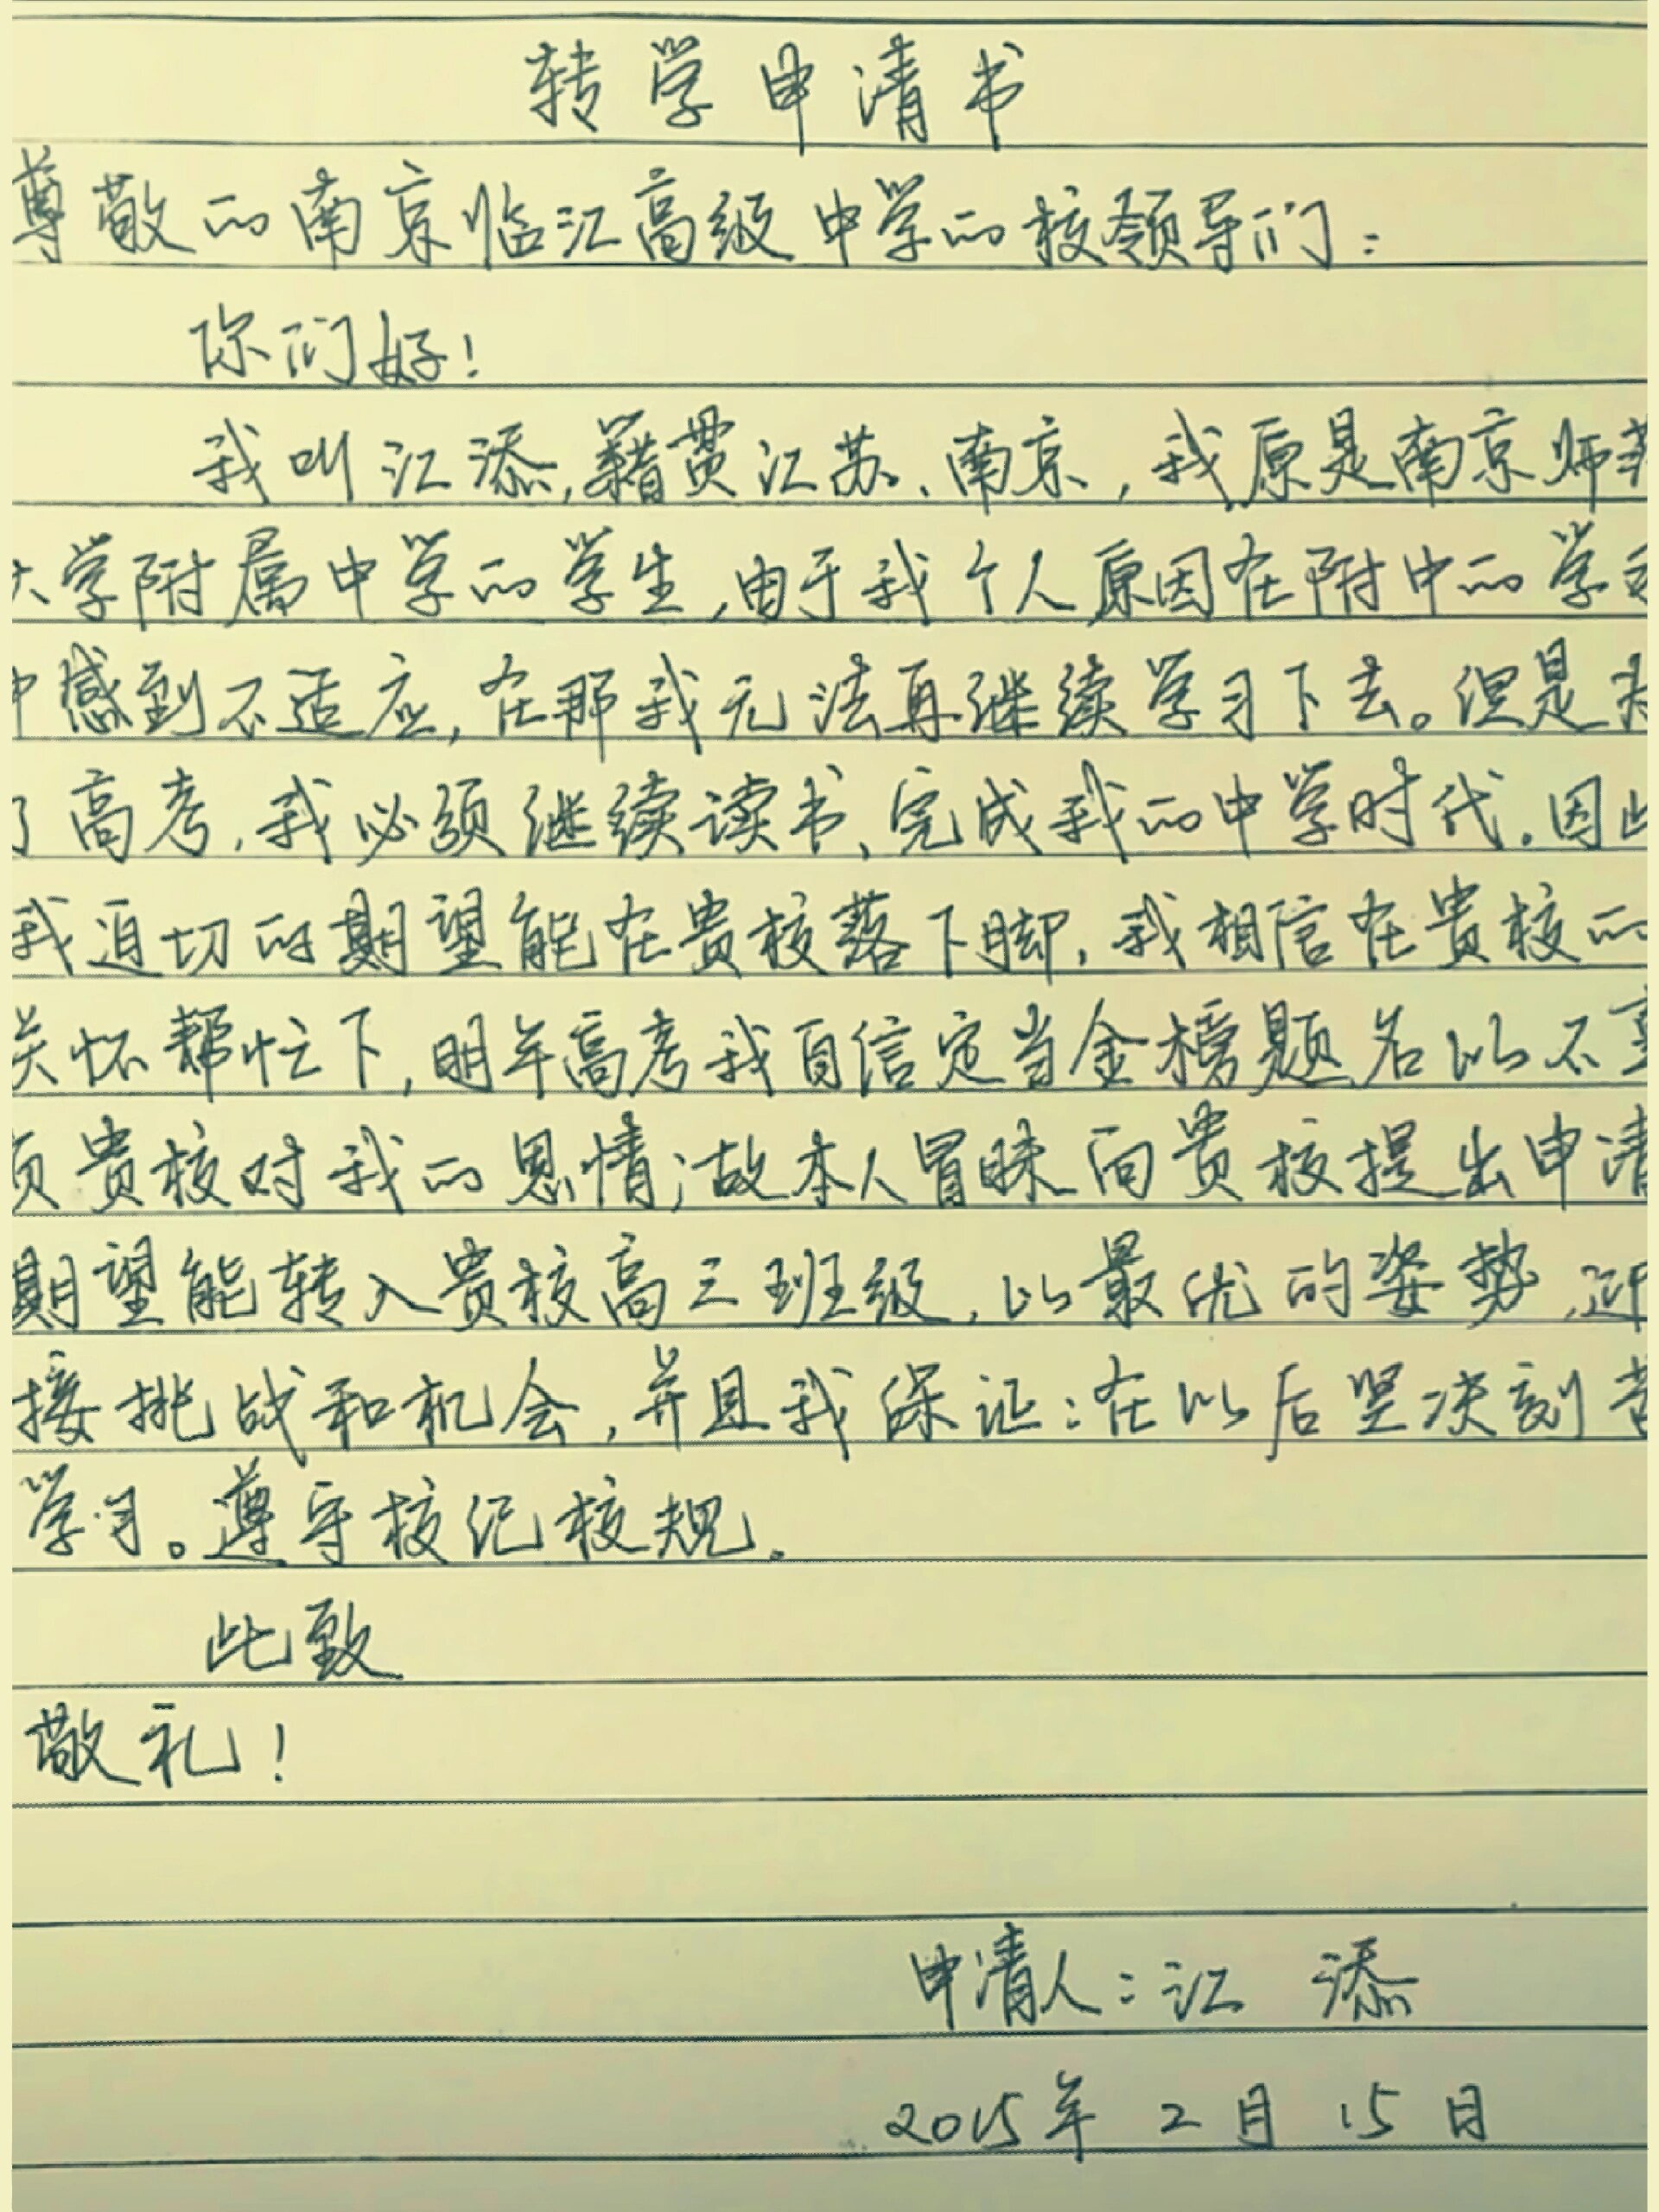 转学申请书
尊敬的南京临江高级中学的校领导们：
你们好！
我叫江添，籍贯江苏、南京，我原是南京师范
大学附属中学的学生，由于我个人原因在附中的学习
中感到不适应，在那我无法再继续学习下去。但是为
了高考，我必须继续读书、完成我的中学时代。因此
我迫切的期望能在贵校落下脚，我相信在贵校的
关怀帮忙下，明年高考我自信定当金榜题名以不辜
负贵校对我的恩情；故本人冒昧向贵校提出申请
期望能转入贵校高三班级，以最优的姿势，迎
接挑战和机会，并且我保证：在以后坚决刻苦
学习。遵守校纪校规。
此致
敬礼！
申请人：江 添
2015年 2月 15日